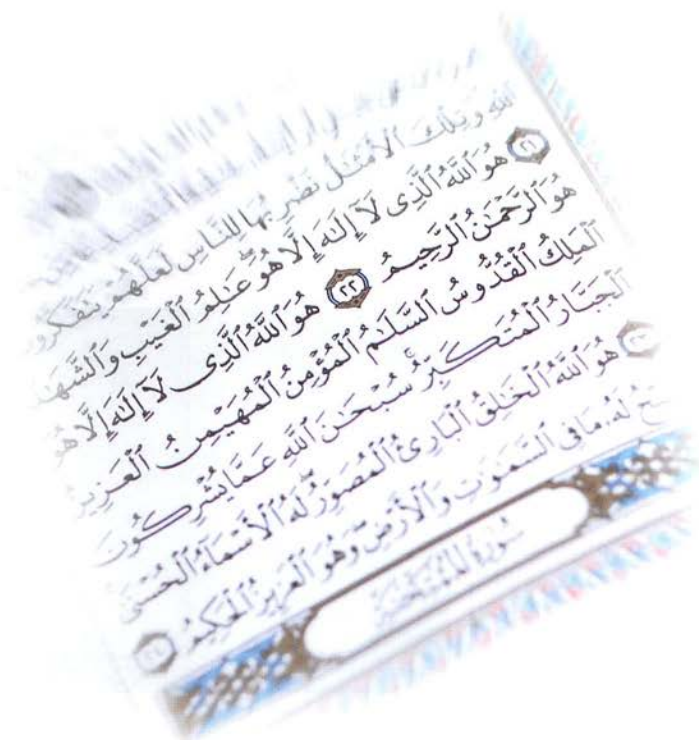 ٱللَّهِ وَتِلْكَ ٱلْأَمْثَٰلُ نَضْرِبُهَا لِلنَّاسِ لَعَلَّهُمْ يَتَفَكَّرُو
٢١ هُوَ ٱللَّهُ ٱلَّذِى لَآ إِلَٰهَ إِلَّا هُوَ ۖ عَٰلِمُ ٱلْغَيْبِ وَٱلشَّهَٰ
هُوَ ٱلرَّحْمَٰنُ ٱلرَّحِيمُ ٢٢ هُوَ ٱللَّهُ ٱلَّذِى لَآ إِلَٰهَ إِلَّا هُوَ
ٱلْمَلِكُ ٱلْقُدُّوسُ ٱلسَّلَٰمُ ٱلْمُؤْمِنُ ٱلْمُهَيْمِنُ ٱلْعَزِيزُ
ٱلْجَبَّارُ ٱلْمُتَكَبِّرُ ۚ سُبْحَٰنَ ٱللَّهِ عَمَّا يُشْرِكُونَ
٢٣ هُوَ ٱللَّهُ ٱلْخَٰلِقُ ٱلْبَارِئُ ٱلْمُصَوِّرُ ۖ لَهُ ٱلْأَسْمَآءُ ٱلْحُسْنَىٰ
بِّحُ لَهُۥ مَا فِى ٱلسَّمَٰوَٰتِ وَٱلْأَرْضِ ۖ وَهُوَ ٱلْعَزِيزُ ٱلْحَكِيمُ ٢٤
سُورَةُ ٱلْمُمْتَحَنَةِ